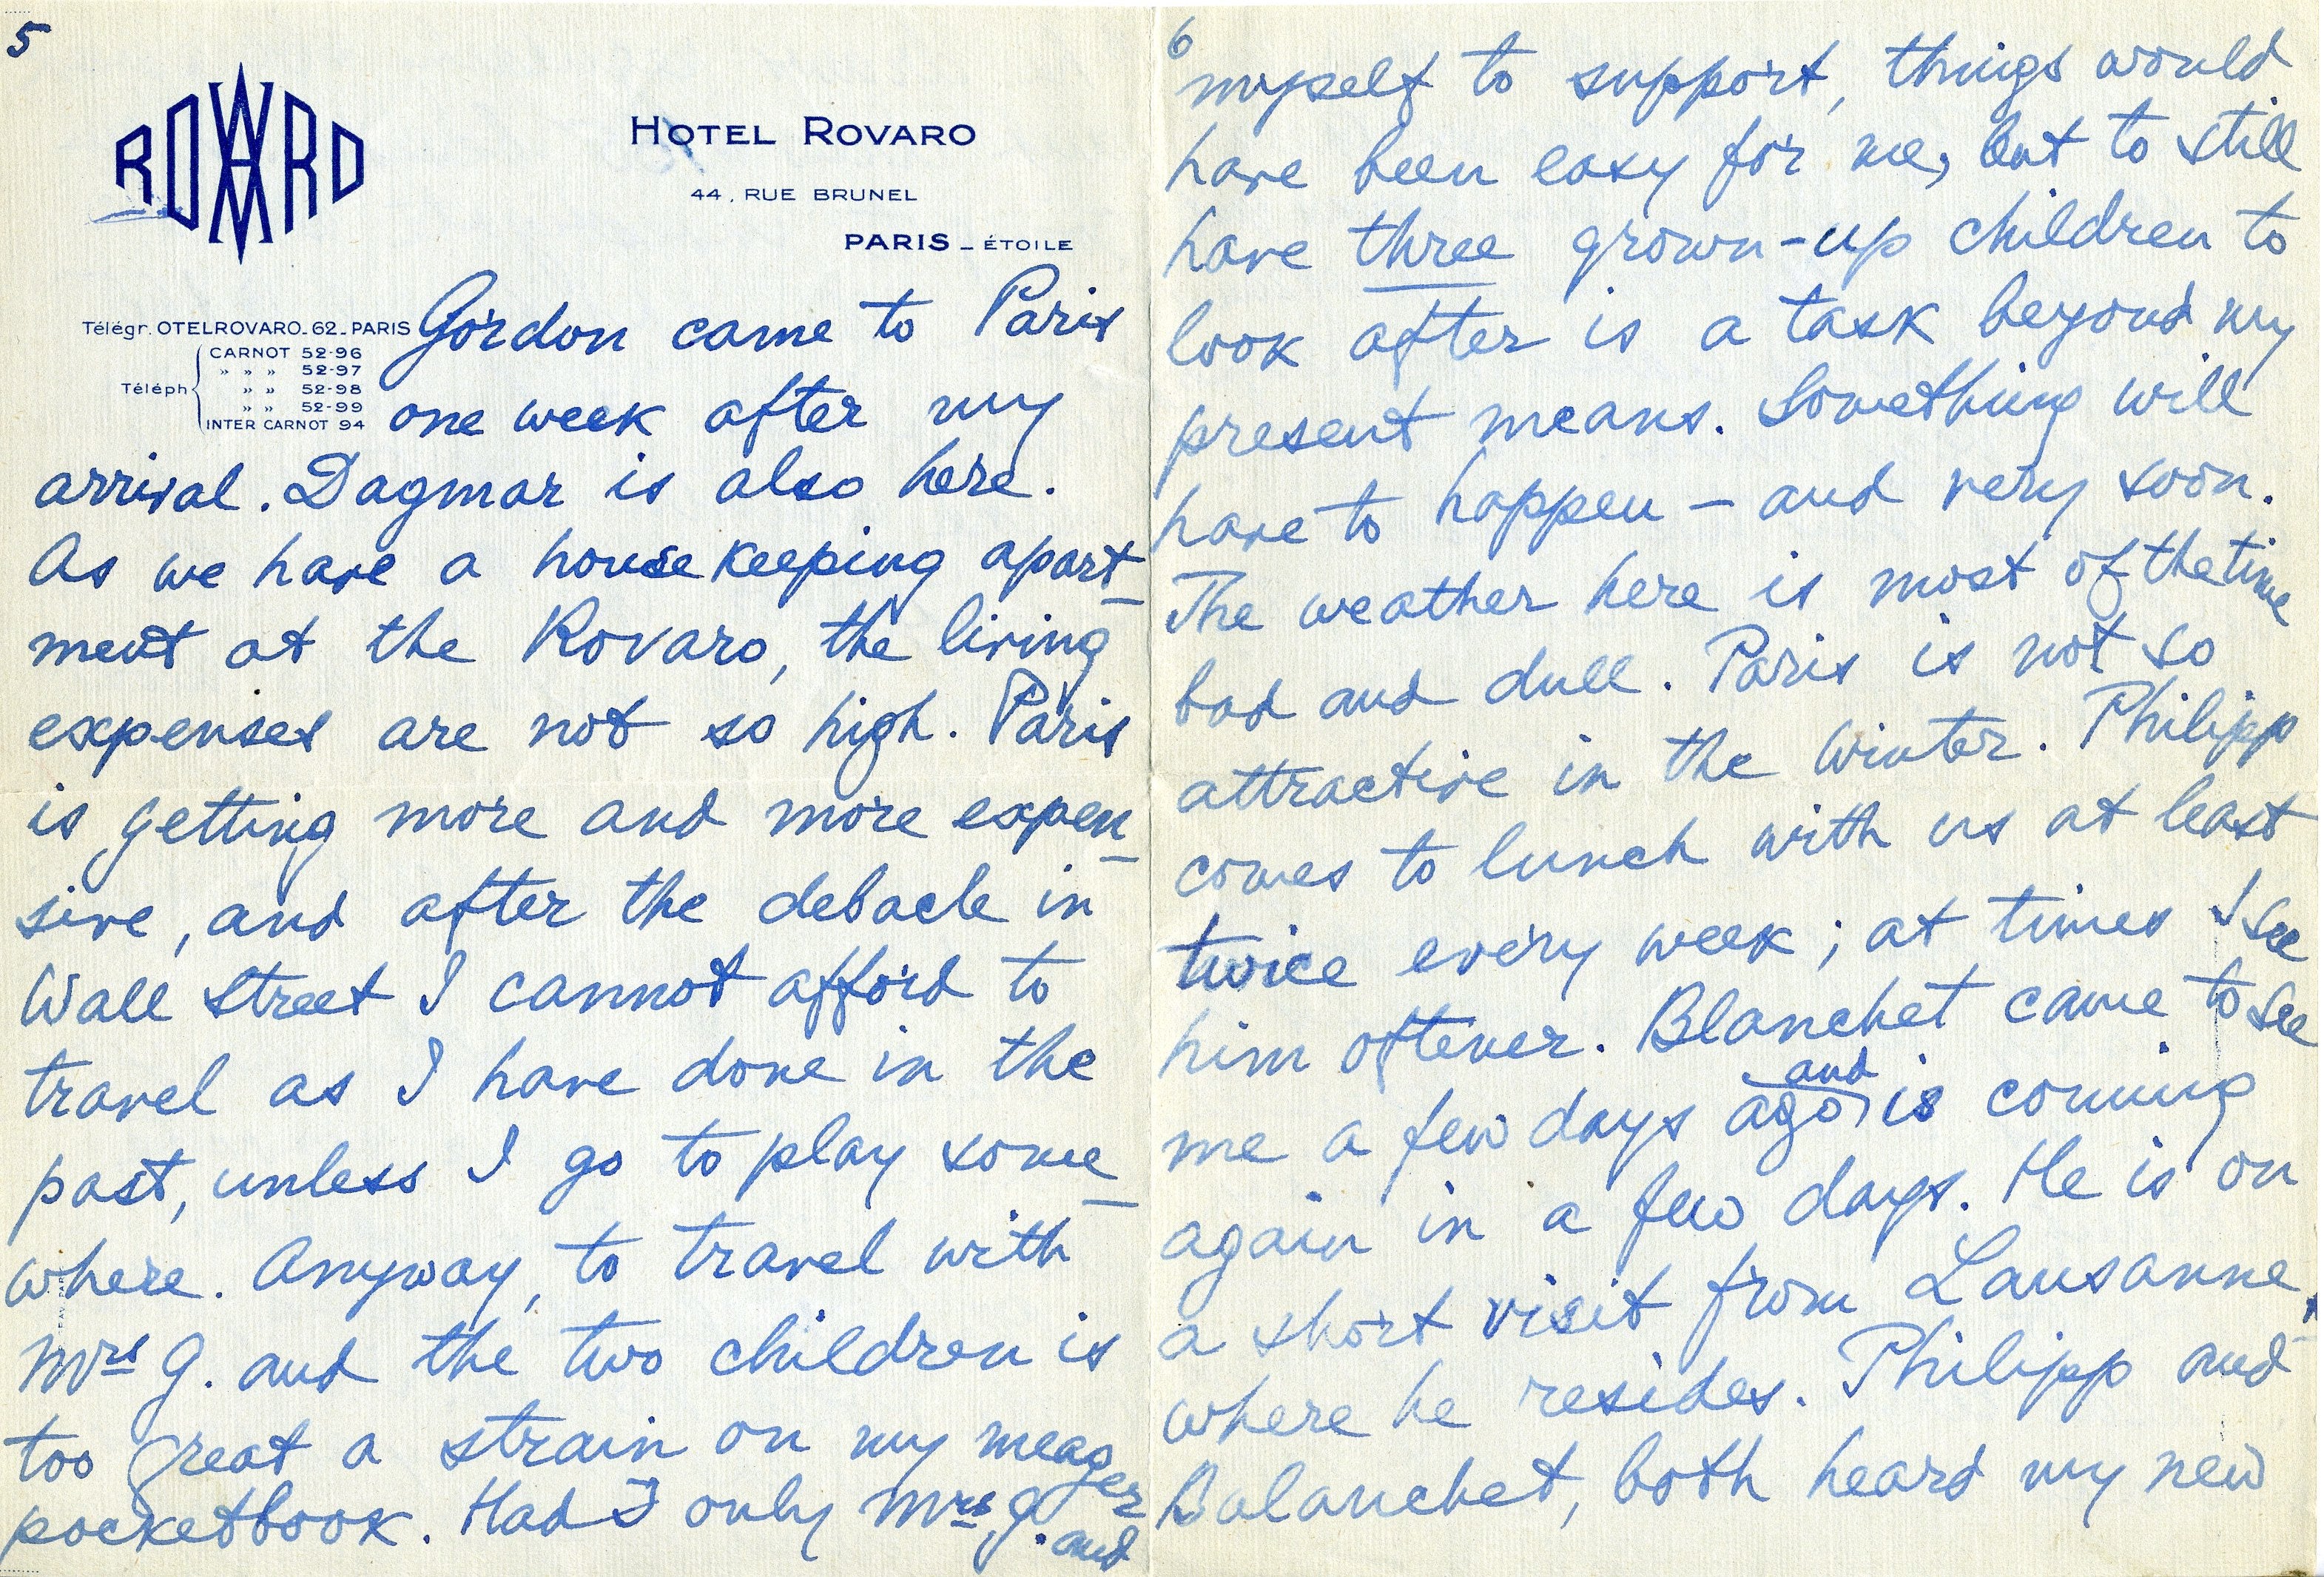 5
ROVARO
HOTEL ROVARO
44, RUE BRUNEL
PARIS - ÉTOILE
Télégr. OTELROVARO-62-PARIS
Téléph
CARNOT 52-96
» » » 52-97
» » 52-98
» » 52-99
INTER CARNOT 94
Gordon came to Paris
one week after my
arrival. Dagmar is also here.
As we have a housekeeping apart-
ment at the Rovaro, the living
expenses are not so high. Paris
is getting more and more expen-
sive, and after the debacle in
Wall Street I cannot afford to
travel as I have done in the
past, unless I go to play some-
where. Anyway, to travel with
Mrs G. and the two children is
too great a strain on my meager
pocketbook. Had I only Mrs. G. and
6
myself to support, things would
have been easy for me, but to still
have three grown-up children to
look after is a task beyond my
present means. Something will
have to happen - and very soon.
The weather here is most of the time
bad and dull. Paris is not so
attractive in the Winter. Philipp
comes to lunch with us at least
twice every week; at times I see
him oftener. Blanchet came to see
me a few days ago, and is coming
again in a few days. He is on
a short visit from Lausanne,
where he resides. Philipp and
Balanchet, both heard my new